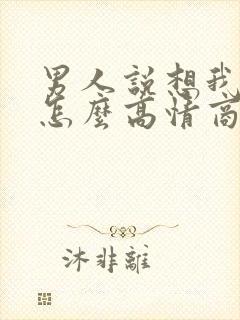 男人說想我
怎麼高情商
沐非離